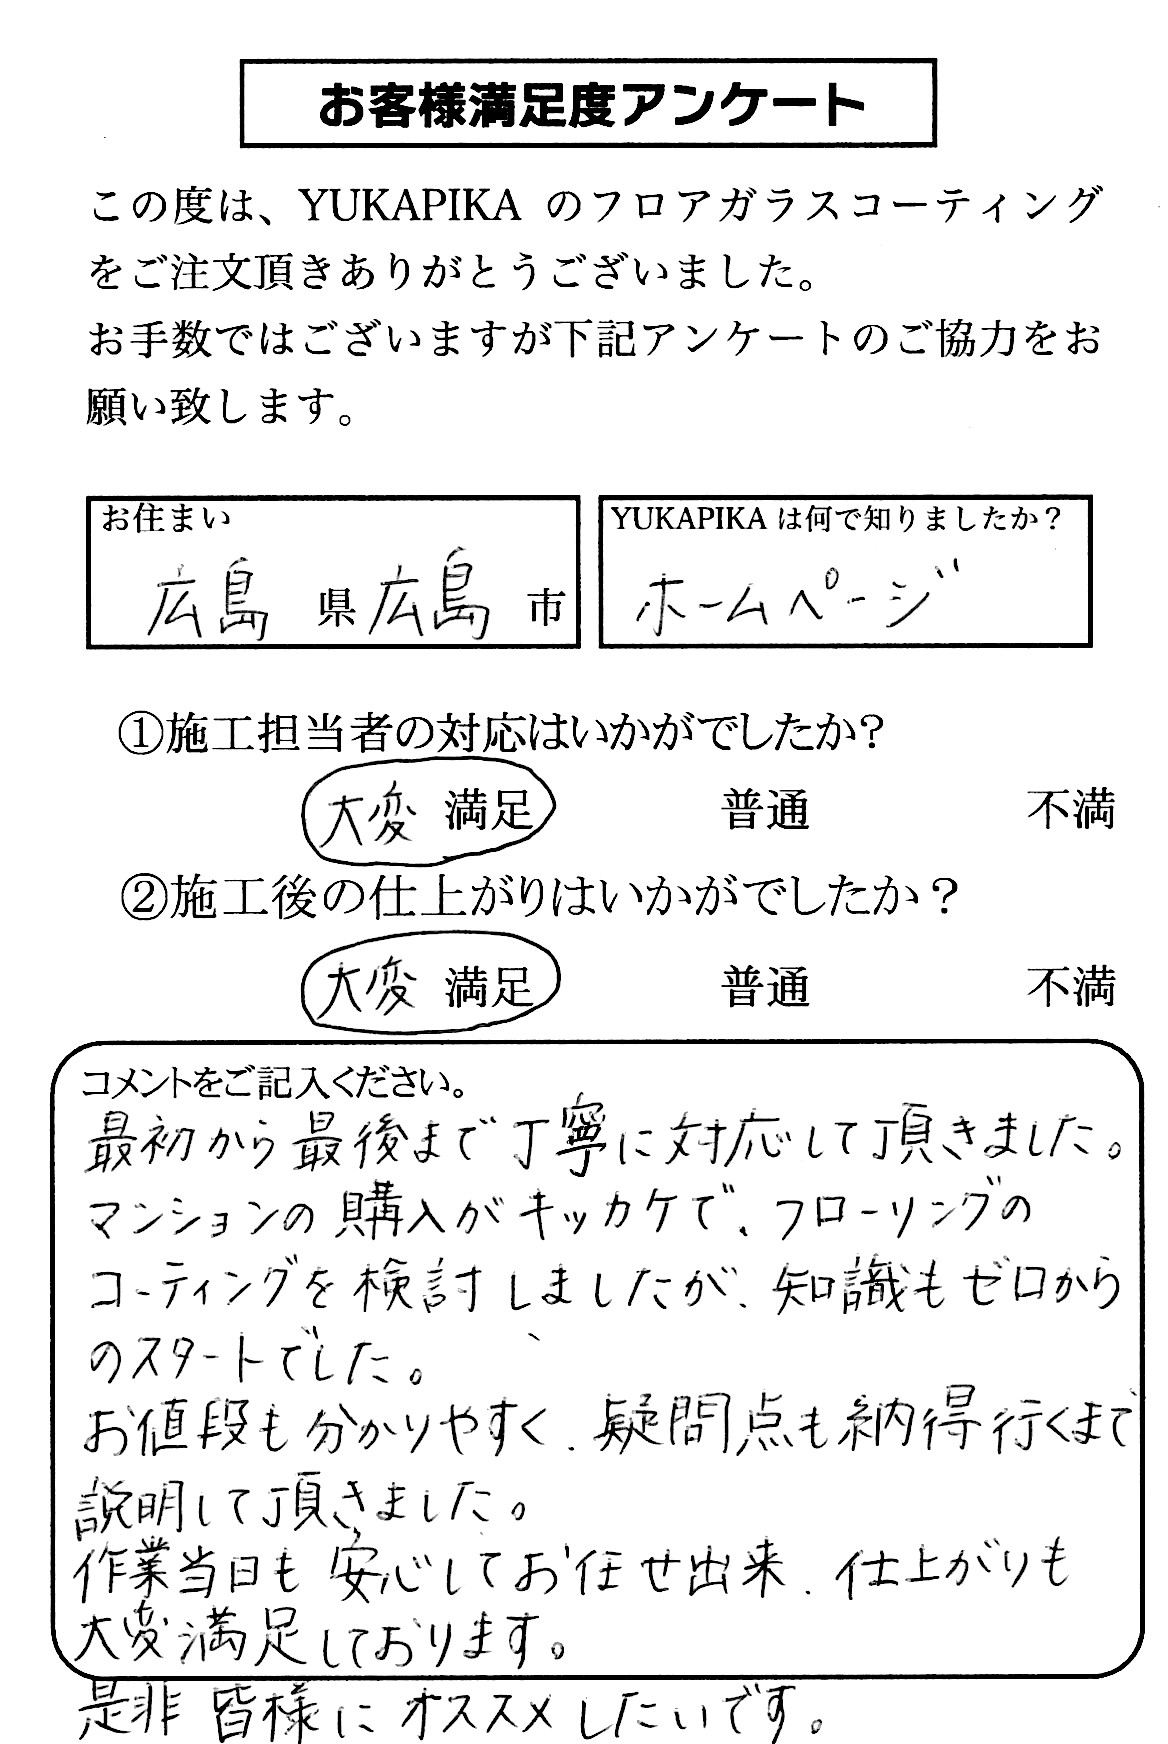 お客様満足度アンケート
この度は、YUKAPIKA のフロアガラスコーティング
をご注文頂きありがとうございました。
お手数ではございますが下記アンケートのご協力をお
願い致します。
お住まい
広島 県 広島 市
YUKAPIKA は何で知りましたか？
ホームページ
①施工担当者の対応はいかがでしたか?
大変 満足 普通 不満
②施工後の仕上がりはいかがでしたか？
大変 満足 普通 不満
コメントをご記入ください。
最初から最後まで丁寧に対応して頂きました。
マンションの購入がキッカケで、フローリングの
コーティングを検討しましたが、知識もゼロから
のスタートでした。
お値段も分かりやすく、疑問点も納得行くまで
説明して頂きました。
作業当日も安心してお任せ出来、仕上がりも
大変満足しております。
是非皆様にオススメしたいです。